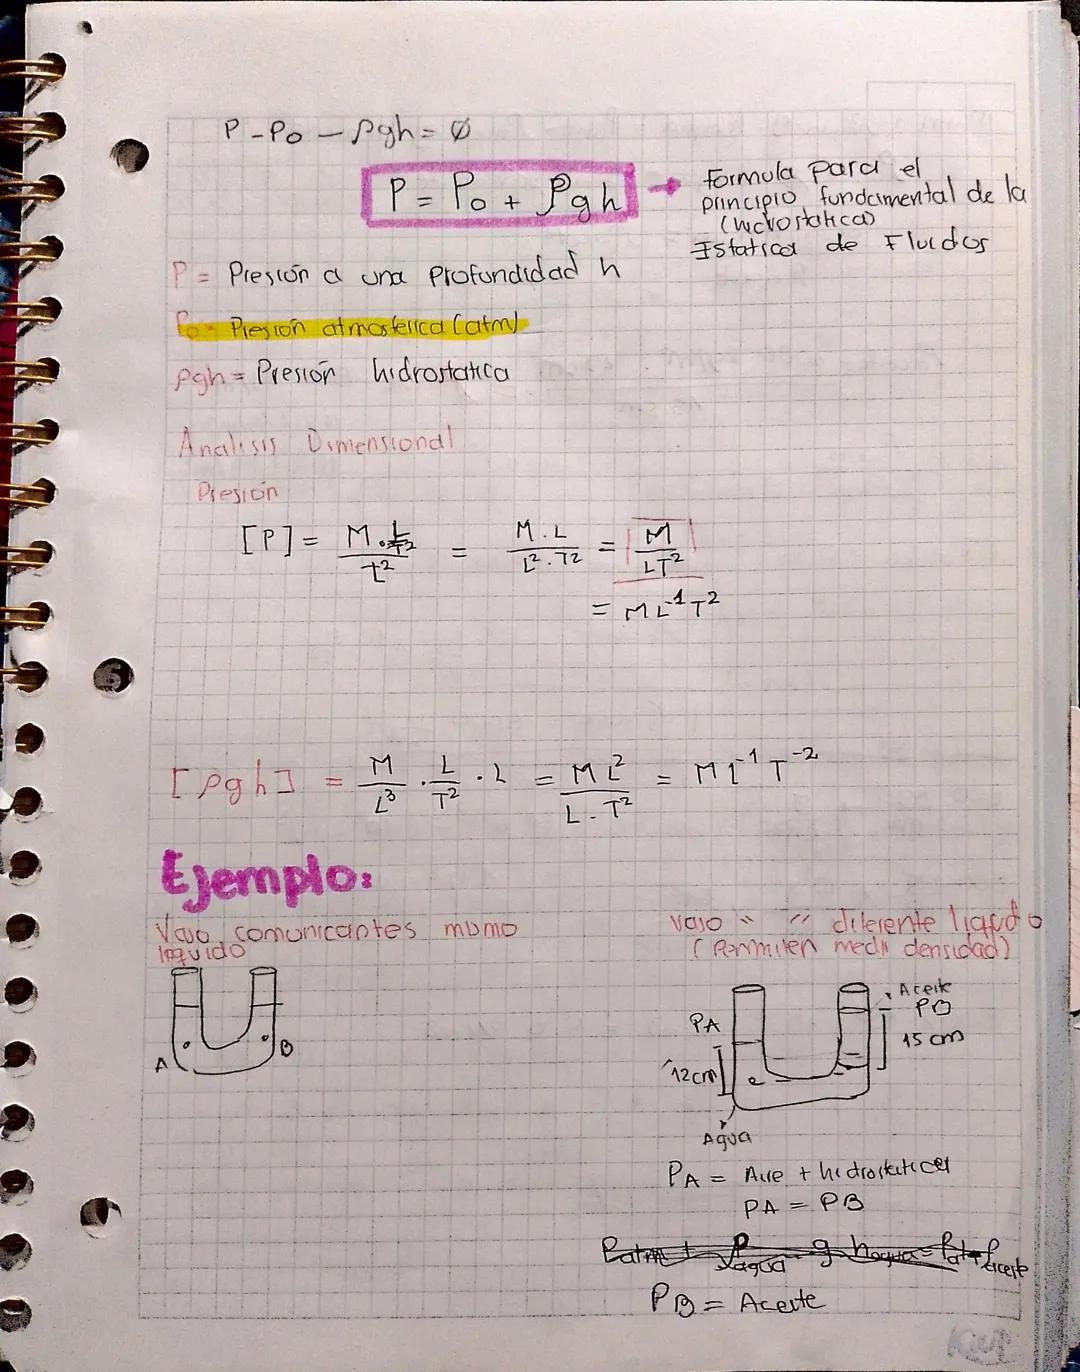 P - Po - ρgh = ∅
P = Po + ρgh → formula para el
principio fundamental de la
(hidrostatica)
Estatica de Fluidos
P = Presión a una profundidad h
Po = Presión atmosferica (atm)
ρgh = Presión hidrostatica
Analisis Dimensional
Presión
[P] = M · L/T² / L² = M . L / L² . T² = M / LT²
= M L⁻¹ T²
[ρgh] = M/L³ · L/T² · L = M L² / L . T² = M L⁻¹ T⁻²
Ejemplo:
Vaso comunicantes mismo
liquido
vaso " " diferente liquido
(Permiten medir densidad)
A
B
PA
12cm
Aceite
PB
15 cm
Agua
PA = Aire + hidrostatica
PA = PB
Patm + ρagua g hagua = Pat + ρaceite
PB = Aceite